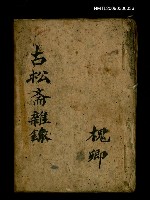 古松斋雜錄
槐卿